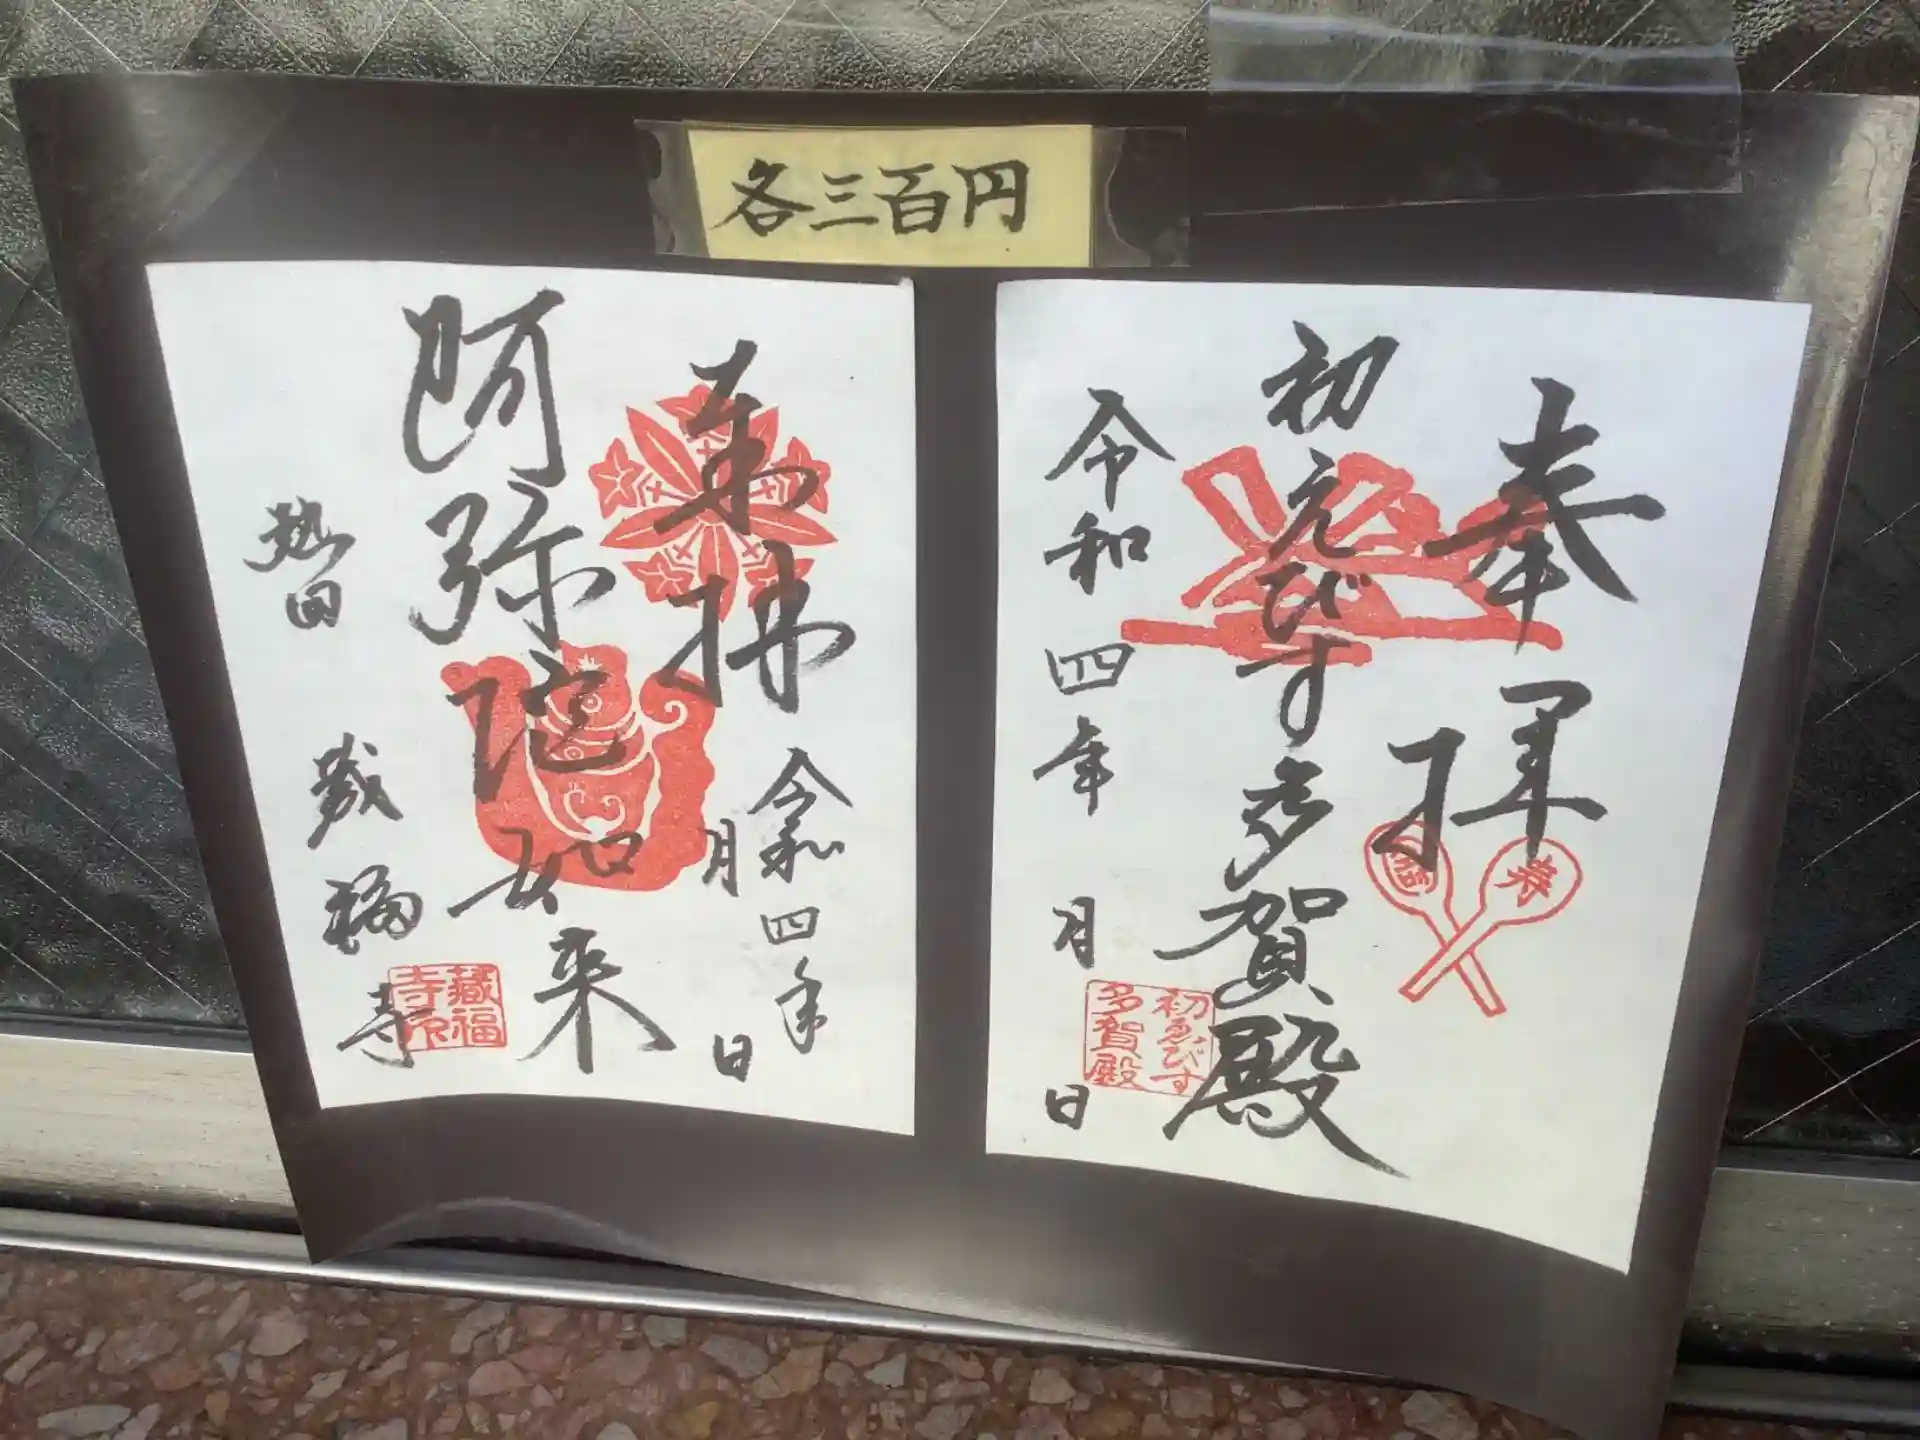 各三百円
奉拝
初えびす多賀殿
令和四年 月 日
初ゑびす
多賀殿
奉拝
令和四年
月 日
阿弥陀如来
熱田 蔵福寺
蔵福
寺印